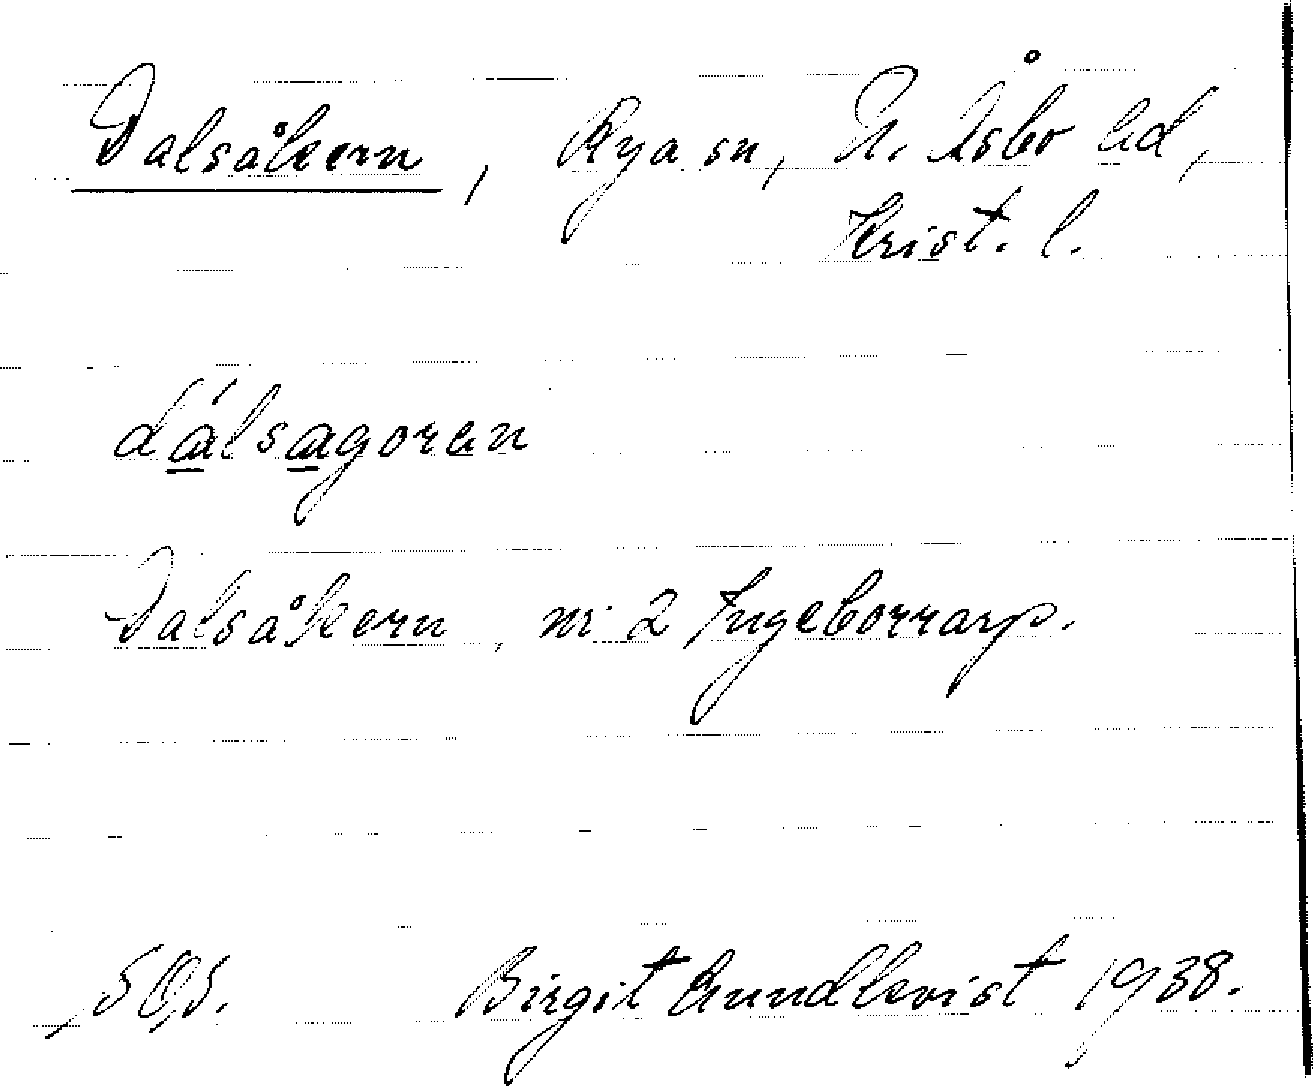 Dalsåkern, Rya sn, N. Åsbo hd,
Krist. l.
dálsagoran
Dalsåkern, nr 2 Ingeborrarp.
Birgit Lundkvist 1938.